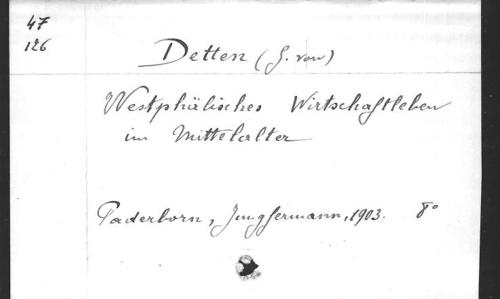 47
126
Detten (G. von)
Westphälisches Wirtschaftleben
im Mittelalter
Paderborn, Jungfermann, 1903. 8°